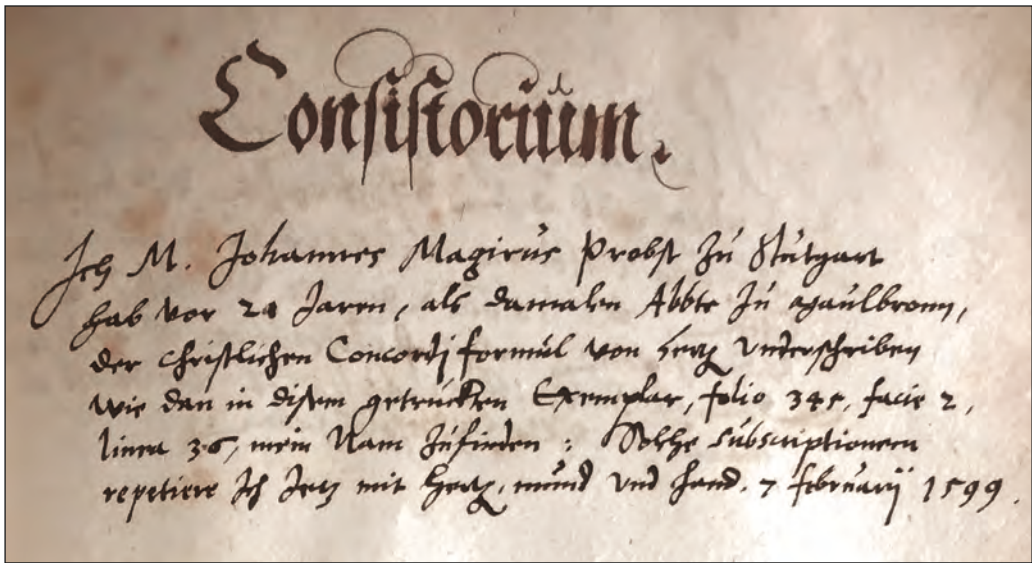 Consistorium.
Ich M. Johannes Magirus Probst zů Stůtgart
hab vor 24 Jaren, als damalen Abbte zů Maulbronn,
der Christlichen Concordj formůl von hertz vnderschriben
wie dan in disem getrůckten Exemplar, folio 345, facie 2,
linea 36, mein Nam zůfinden : Solche sůbscriptionem
repetiere Ich Jetz mit hertz, můnd vnd hand. 7 februarij 1599.